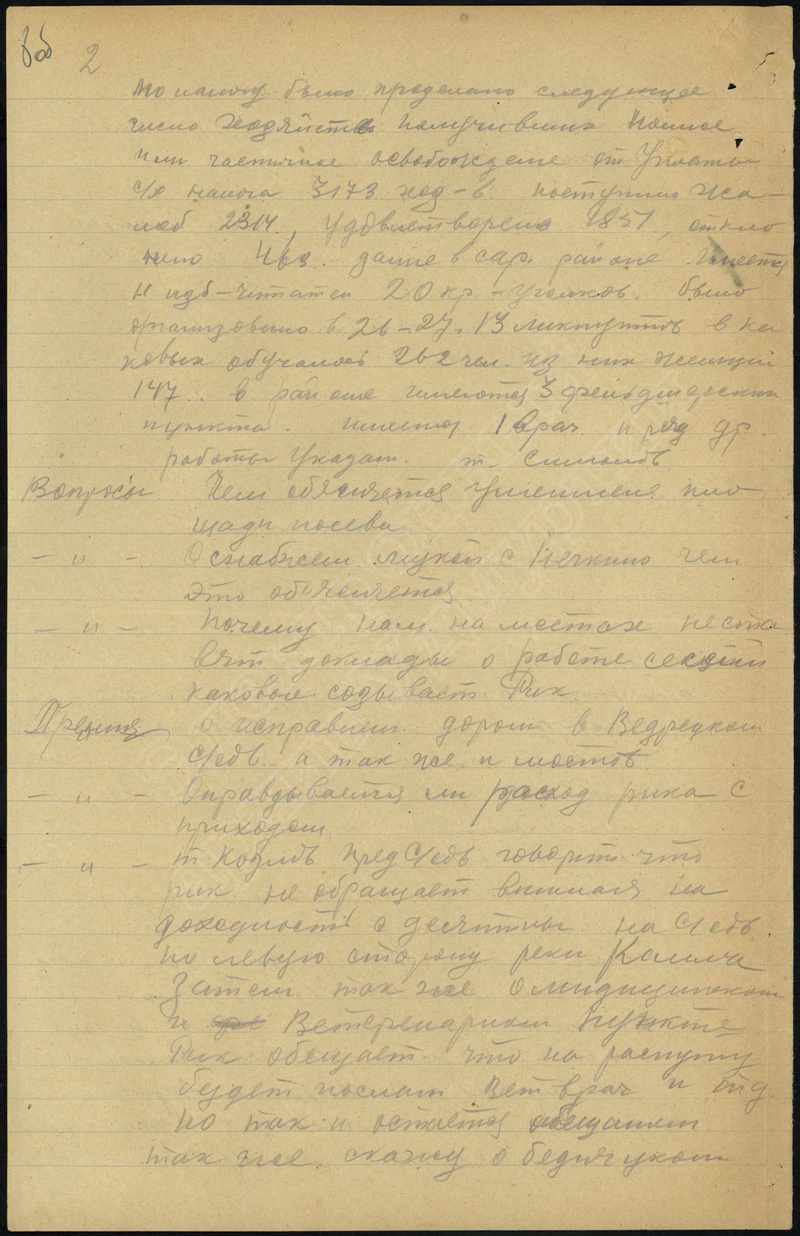 2
по налогу было проделано следующее
число хозяйств получивших полное
или частичное освобождение от уплаты
с/х налога 3173 хоз-в. поступило жа-
лоб 2314, удовлетворено 1851, откло
нено 463. далее в сар. районе имеется
изб-читален 20 кр-уголков. было
организовано в 26-27. 13 ликпунктов в ка
ковых обучалось 262 чел. из них женщин
147. в районе имеются 3 фельдшерских
пункта. имеется 1 врач и ряд др.
работы указал. т.
Вопросы Чем объясняется уменшение пло
щади посева
- " - Снабжен мукой с Нечкино чем
это объясняется
- " - Почему нам на местах не ста
вят доклады о работе секции
каковые созывает Рик
Прения о исправлен дорог в
С/сов. а так же и мостов
- " - Оправдывается ли расход рика с
приходом
- " - т Козлов пред С/сов говорит что
рик не обращает внимания на
доходность с десятины на С/сов
по левую сторону реки Камы
Затем так же о
и Ветеренарном пункте
Рик обещает что на
будет послан Вет врач и тд
но так и остается обещанием
так же скажу о